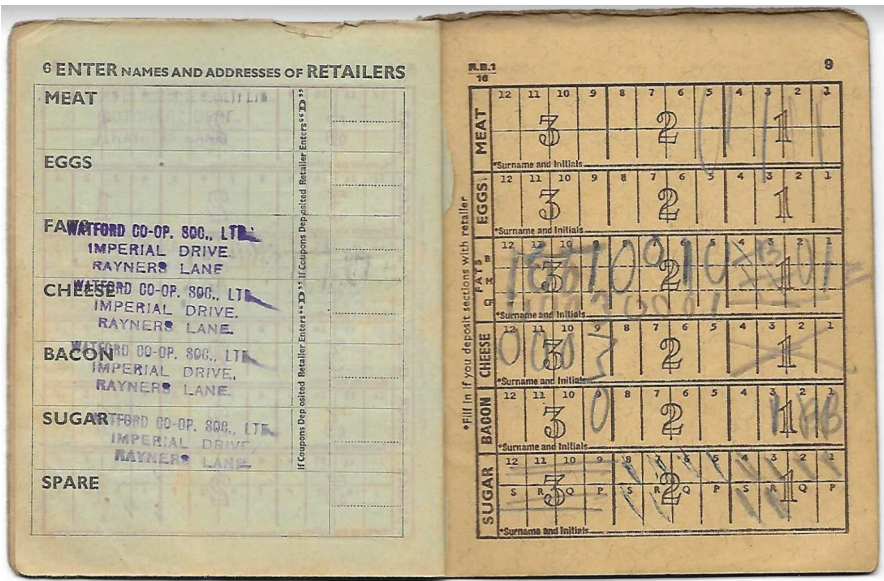 6 ENTER NAMES AND ADDRESSES OF RETAILERS
MEAT
EGGS
FATS
WATFORD CO-OP. SOC., LTD.
IMPERIAL DRIVE.
RAYNERS LANE
CHEESE
WATFORD CO-OP. SOC., LTD.
IMPERIAL DRIVE.
RAYNERS LANE.
BACON
WATFORD CO-OP. SOC., LTD.
IMPERIAL DRIVE.
RAYNERS LANE.
SUGAR
WATFORD CO-OP. SOC., LTD.
IMPERIAL DRIVE
RAYNERS LANE.
SPARE
If Coupons Deposited Retailer Enters "D"
If Coupons Deposited Retailer Enters "D"
R.B.1
16
9
*Fill in if you deposit sections with retailer
MEAT
12 11 10 9 8 7 6 5 4 3 2 1
3 2 1
*Surname and Initials
EGGS
12 11 10 9 8 7 6 5 4 3 2 1
3 2 1
*Surname and Initials
FATS
12 11 10 9 8 7 6 5 4 3 2 1
3 2 1
*Surname and Initials
CHEESE
12 11 10 9 8 7 6 5 4 3 2 1
3 2 1
*Surname and Initials
BACON
12 11 10 9 8 7 6 5 4 3 2 1
3 2 1
*Surname and Initials
SUGAR
12 11 10 9 8 7 6 5 4 3 2 1
S R Q P S R Q P S R Q P
3 2 1
*Surname and Initials